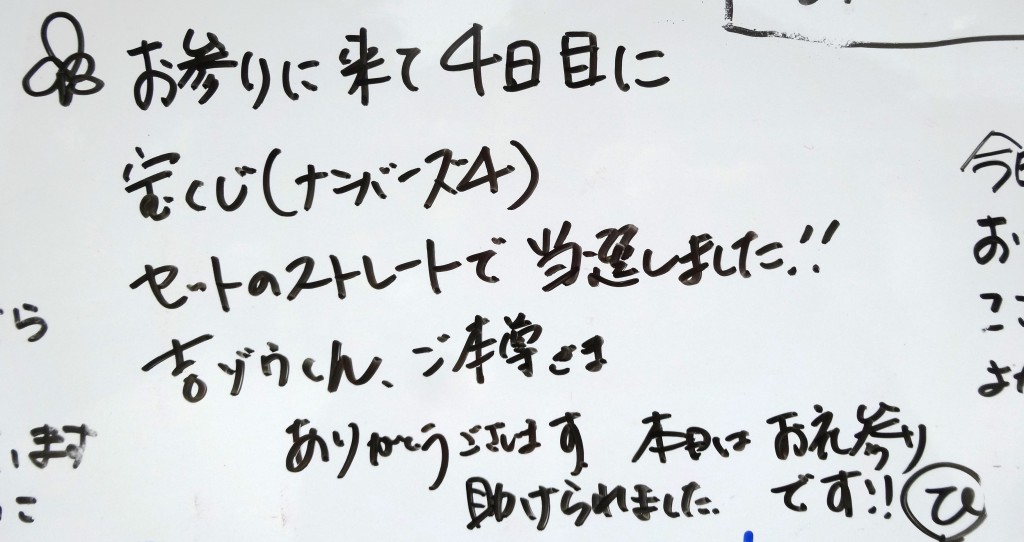 お参りに来て4日目に
宝くじ(ナンバーズ4)
セットのストレートで当選しました!!
吉ゾウくん、ご本尊さま
ありがとうございます 本日はお礼参り
助けられました です!! ひ
ら
います
こ
今日
お
ここ
よ